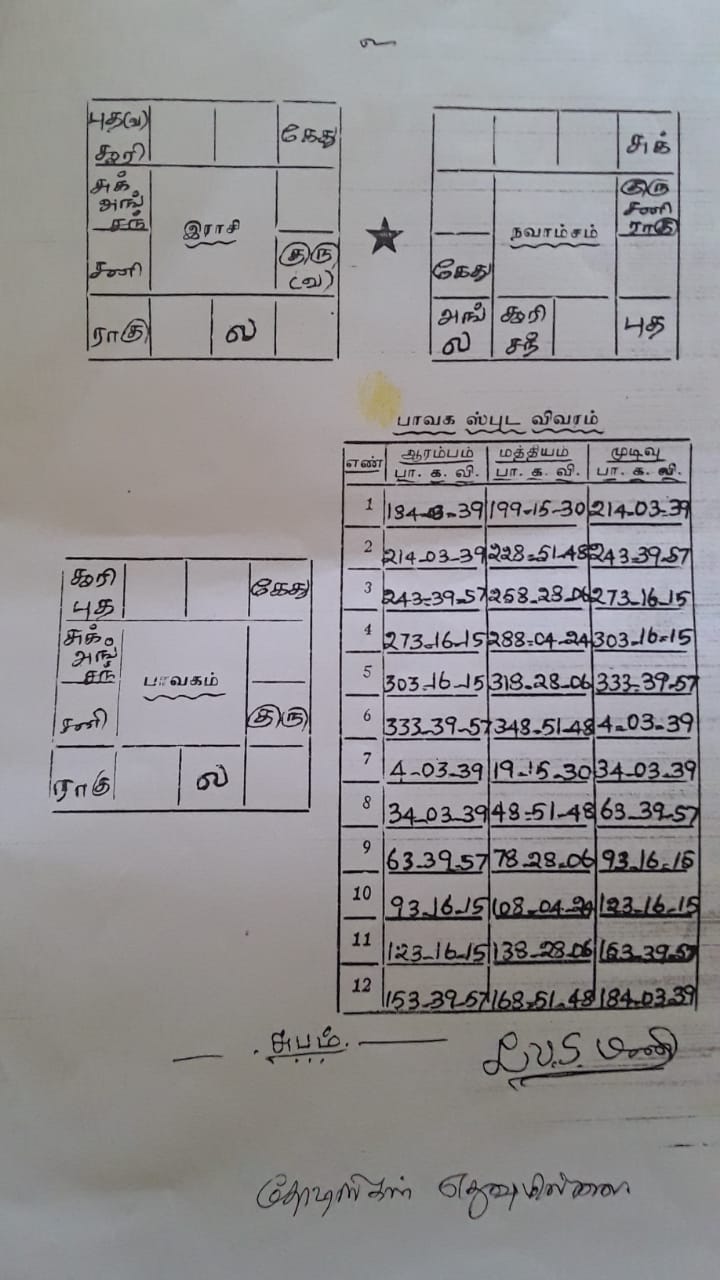 உ
புத(வ)
சூரி
கேது
சுக்
அங்
சந்
இராசி
சனி
குரு
(வ)
ராகு
ல
சுக்
குரு
சனி
ராகு
நவாம்சம்
கேது
அங்
ல
சூரி
சந்
புத
பாவக ஸ்புட விவரம்
எண் ஆரம்பம் மத்தியம் முடிவு
பா. க. வி. பா. க. வி. பா. க. வி.
1 184-03-39 199-15-30 214-03-39
2 214-03-39 228-51-48 243-39-57
3 243-39-57 258-28-06 273-16-15
4 273-16-15 288-04-24 303-16-15
5 303-16-15 318-28-06 333-39-57
6 333-39-57 348-51-48 4-03-39
7 4-03-39 19-15-30 34-03-39
8 34-03-39 48-51-48 63-39-57
9 63-39-57 78-28-06 93-16-15
10 93-16-15 108-04-24 123-16-15
11 123-16-15 138-28-06 153-39-57
12 153-39-57 168-51-48 184-03-39
சூரி
புத
கேது
சுக்
அங்
சந்
பாவகம்
சனி
குரு
ராகு
ல
சுபம்.
மணி
எதுவுமில்லை